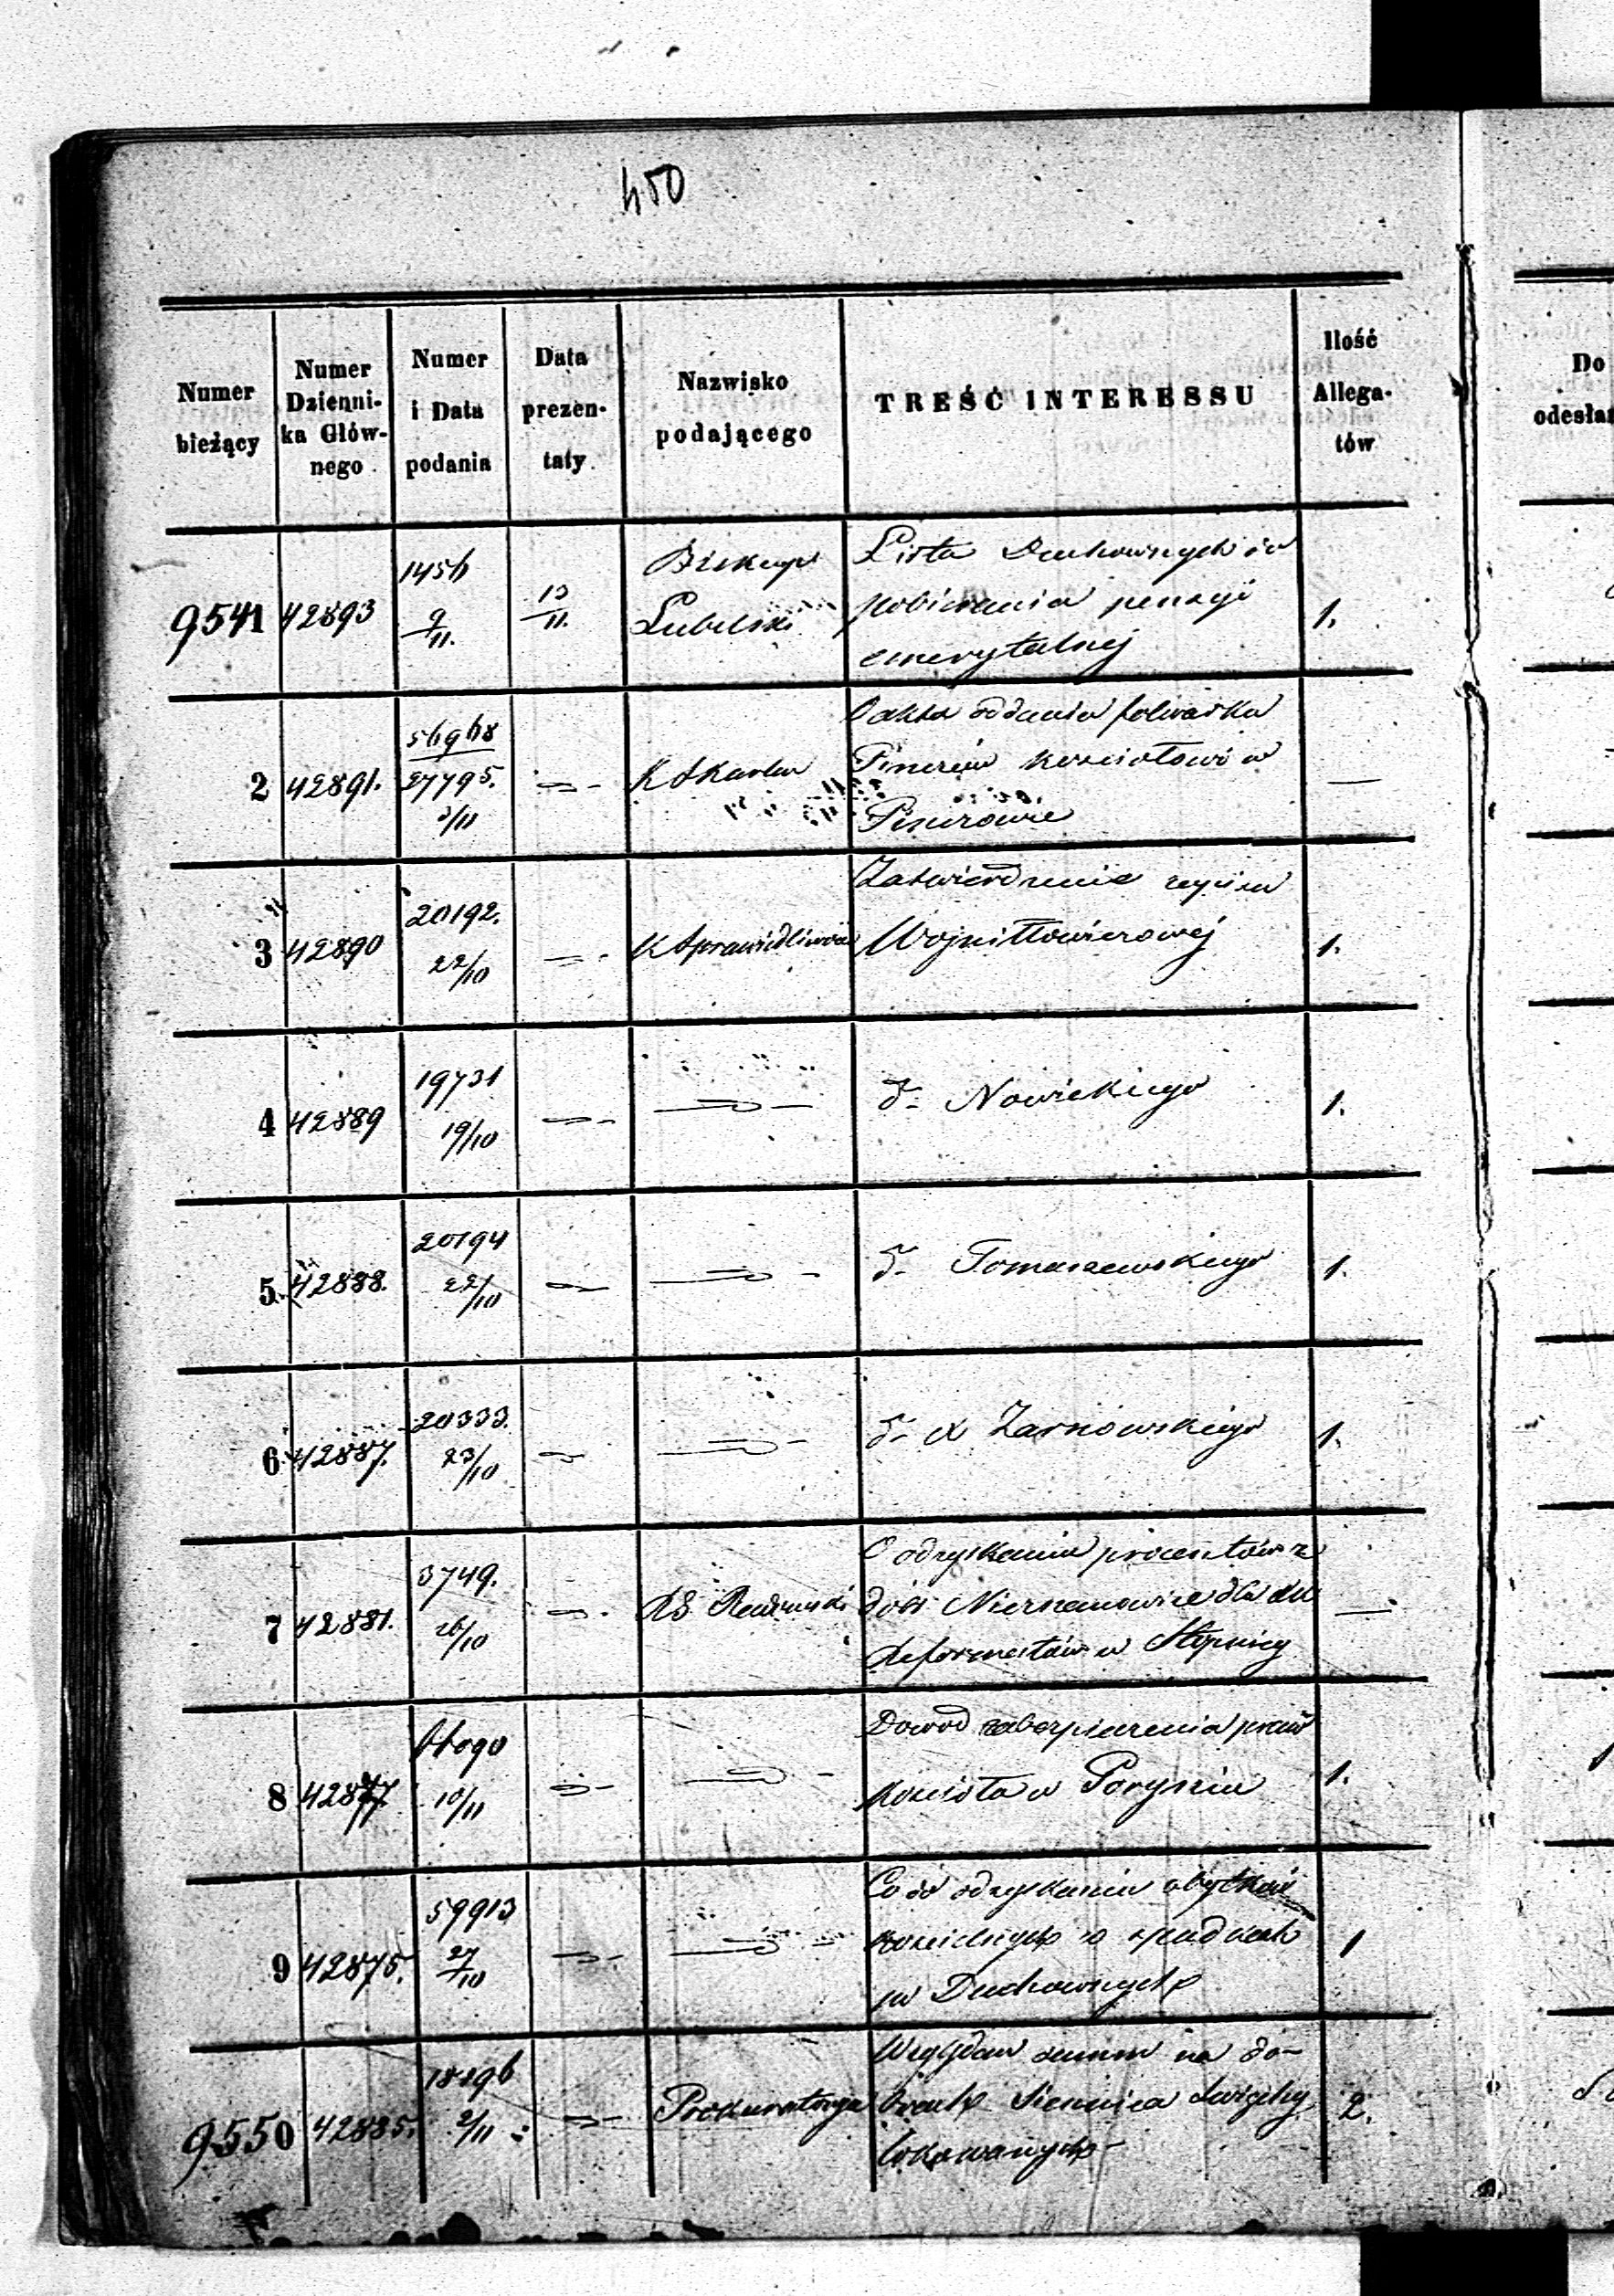 450
Numer bieżący | Numer Dzienni- ka Głów- nego | Numer i Data podania | Data prezen- taty | Nazwisko podającego | TREŚĆ INTERESSU | Ilość Allega- tów
Do
odesła
9541 | 42893 | 1456 9/11. | 13/11. | Biskup Lubelski | Lista Duchownych do pobierania pensyi emerytalnej | 1.
2 | 42891. | 56968 27795. 3/11 | K Skarbu | O akta oddania folwarku kościołowi w | —
3 | 42890 | 20192. 22/10 | K Sprawiedliwości | Zatwierdzenie zapisu | 1.
4 | 42889 | 19731 19/10 | dº Nowickiego | 1.
5 | 42888. | 20194 22/10 | dº Tomaszewskiego | 1.
6 | 42887. | 20333. 23/10 | dº X Żarnowskiego | 1.
7 | 42881. | 3749. 26/10 | RG Radomski | O odzyskaniu procentów z dóbr dla XX Reformatów w Stopnicy | —
8 | 10/11 | Dowód zabezpieczenia praw kościoła w | 1.
9 | 42875. | 59913 27/10 | Co do odzyskania kościelnych w spadkach po Duchownych | 1
9550 | 42885. | 18296 2/11 | Prokuratorya | Względem summ na do- brach Siennica lokowanych | 2.